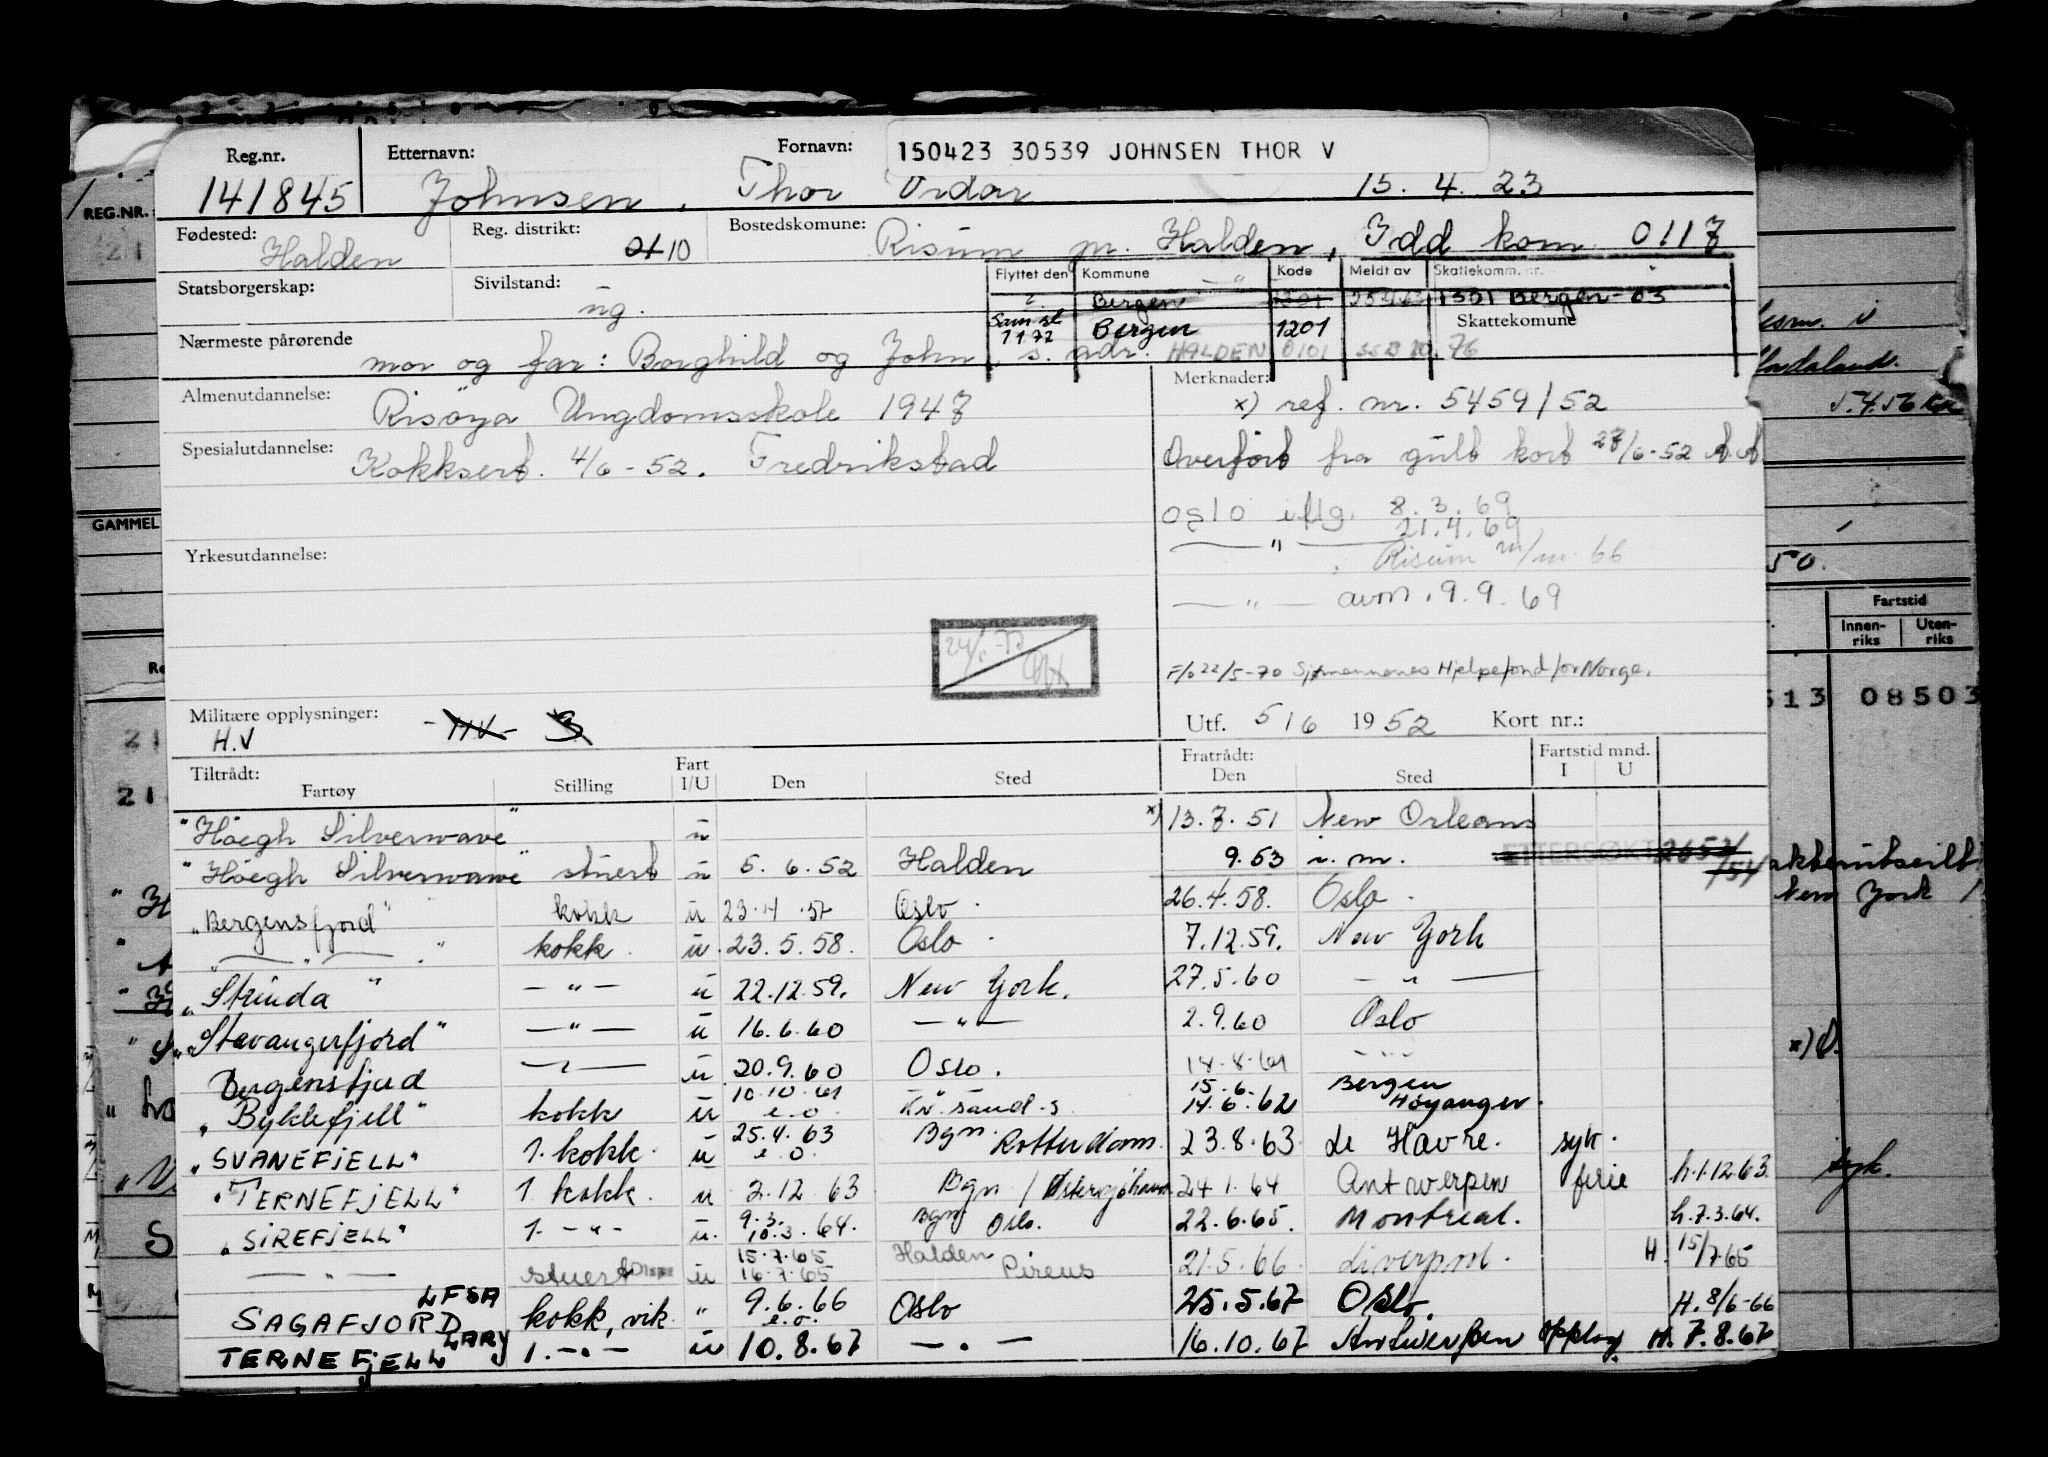 Reg.nr. Etternavn: Fornavn: 150423 30539 JOHNSEN THOR V
141845 Johnsen, Thor Vidar 15. 4. 23
Fødested: Halden Reg. distrikt: 10 Bostedskomune: Risum pr. Halden, Idd kom. 0117
Statsborgerskap: Sivilstand: ug.
Flyttet den Kommune Kode Meldt av Skattekomm. nr.
Bergen 1301 Bergen-03
Bergen 1201 Skattekomune
Nærmeste pårørende mor og far: Borghild og John, s. adr. HALDEN 0101 76
Almenutdannelse: Risöya Ungdomsskole 1947
Merknader: x) ref. nr. 5459/52
Spesialutdannelse: Kokksert. 4/6-52. Fredrikstad
Overfört fra gult kort 27/6-52
Oslo iflg. 8.3.69
— " — 21.4.69
Yrkesutdannelse:
Risum 66
— " — avm. 9.9.69
F/622/5-70 Sjømennenes Hjelpefond for Norge.
Militære opplysninger: H.V
Utf. 5/6 1952 Kort nr.:
Tiltrådt: Fartøy Stilling Fart I/U Den Sted Fratrådt: Den Sted Fartstid mnd. I U
"Höegh Silverwave" u x) 13.7.51 New Orleans
"Höegh Silverwave" stuert u 5. 6. 52 Halden 9.53 i.m.
"Bergensfjord" kokk u 23.4.57 Oslo 26.4.58. Oslo
— " — kokk u. 23.5.58. Oslo 7.12.59. New York
"Strinda" — " — u 22.12.59. New York. 27.5.60 — " —
"Stavangerfjord" — " — u 16.6.60 — " — 2.9.60 Oslo
Bergensfjord — " — u 20.9.60 Oslo. 18.8.61 — " —
"Byklefjell" kokk u 10.10.61 e.o. Kr.sand.s 15.6. 14.6.62 Bergen Høyanger.
"SVANEFJELL" 1. kokk. u 25.4.63 e.o. Bgn. Rotterdam. 23.8.63 Le Havre. syk.
"TERNEFJELL" 1 kokk. u 2.12 63 Bgn / 24.1.64 Antwerpen ferie h.1.12.63
"SIREFJELL" 1. — " — u. 9.3. 10.3.64. Bgn Oslo. 22.6.65. Montreal. h.7.3.64.
— " — stuert u 15.7.65 16.7.65 Halden Pireus 21.5.66 Liverpool. H. 15/7.65
SAGAFJORD LFSA kokk, vik. " 9.6.66 e.o. Oslo 25.5.67 Oslo. H. 8/6-66
TERNEFJELL LARY 1. — " — u 10.8.67 — " — 16.10.67 Antwerpen opplag H. 7.8.67
REG.NR.:
GAMMEL
Hadaland.
50.
Fartstid
Innenriks Utenriks
513 08503
New York
syk.